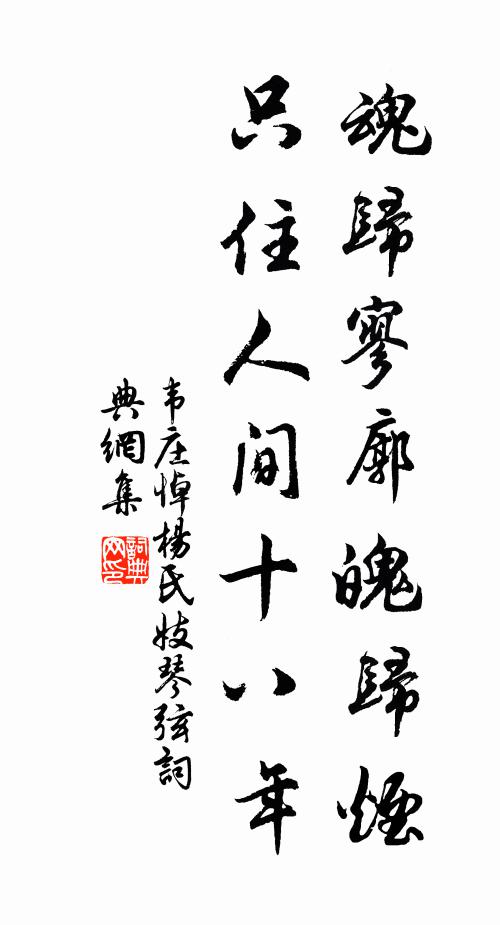 魂歸寥廓魄歸煙
只住人間十八年
韦庄悼楊氏妓琴弦詞
典網集
詞典
网印